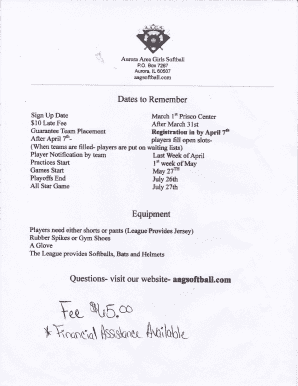 Aurora Area Girls Softball
P.O. Box 7287
Aurora, IL 60507
aagsoftball.com
Dates to Remember
Sign Up Date March 1st Prisco Center
$10 Late Fee After March 31st
Guarantee Team Placement Registration in by April 7th
After April 7th- players fill open slots-
(When teams are filled- players are put on waiting lists)
Player Notification by team Last Week of April
Practices Start 1st week of May
Games Start May 27TH
Playoffs End July 26th
All Star Game July 27th
Equipment
Players need either shorts or pants (League Provides Jersey)
Rubber Spikes or Gym Shoes
A Glove
The League provides Softballs, Bats and Helmets
Questions- visit our website- aagsoftball.com
Fee $65.00
* Financial Assistance Available